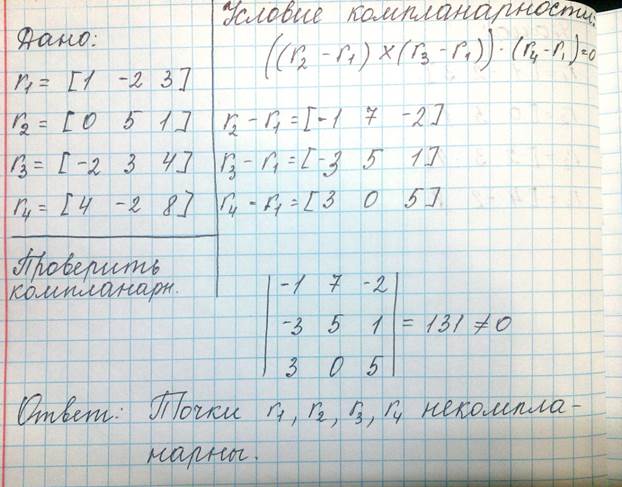 Дано:
r1 = [1 -2 3]
r2 = [0 5 1]
r3 = [-2 3 4]
r4 = [4 -2 8]
Проверить
компланарн.
Условие компланарности:
((r2 - r1) × (r3 - r1)) · (r4 - r1) = 0
r2 - r1 = [-1 7 -2]
r3 - r1 = [-3 5 1]
r4 - r1 = [3 0 5]
| -1 7 -2 |
| -3 5 1 | = 131 ≠ 0
| 3 0 5 |
Ответ: Точки r1, r2, r3, r4 некомпла-
нарны.